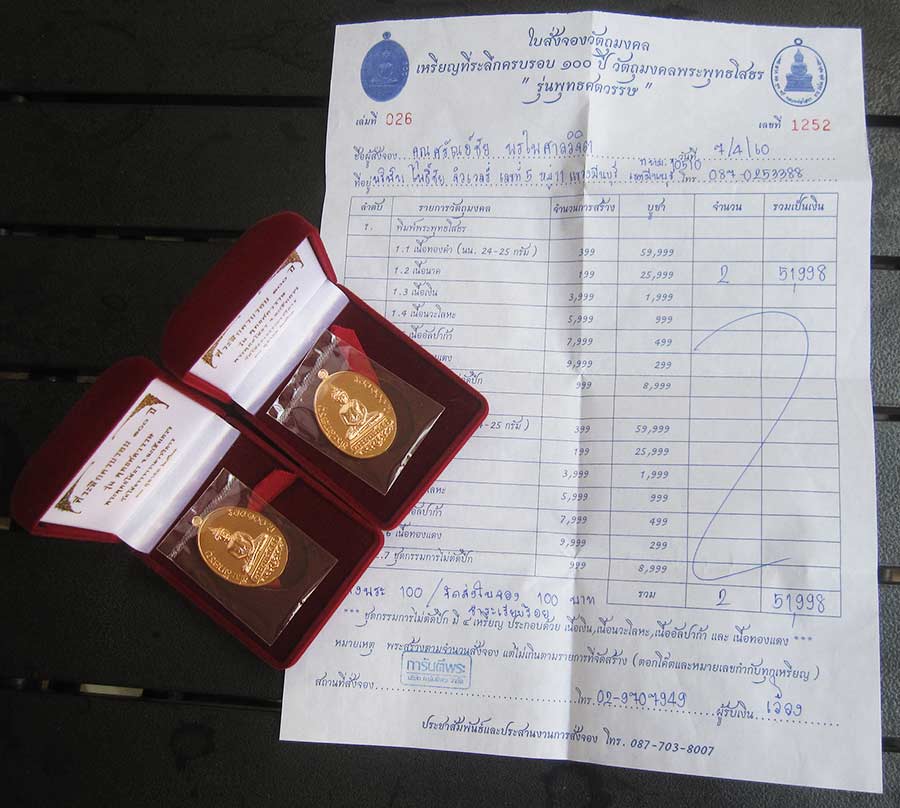 ใบสั่งจองวัตถุมงคล
เหรียญที่ระลึกครบรอบ ๑๐๐ ปี วัตถุมงคลพระพุทธโสธร
" รุ่นพุทธศตวรรษ "
เล่มที่ 026 เลขที่ 1252
ชื่อผู้สั่งจอง คุณศรัณย์ชัย วันที่ 7/4/60
ที่อยู่ เลขที่ 5 หมู่ 11 แขวงมีนบุรี เขตมีนบุรี กทม. 10510 โทร 087-0253388
ลำดับ รายการวัตถุมงคล จำนวนการสร้าง บูชา จำนวน รวมเป็นเงิน
1. พิมพ์พระพุทธโสธร
1.1 เนื้อทองคำ (นน. 24-25 กรัม) 399 59,999
1.2 เนื้อนาค 199 25,999 2 51,998
1.3 เนื้อเงิน 3,999 1,999
1.4 เนื้อนวะโลหะ 5,999 999
เนื้ออัลปาก้า 7,999 499
แดง 9,999 299
ไม่ตัดปีก 999 8,999
4-25 กรัม) 399 59,999
199 25,999
3,999 1,999
โลหะ 5,999 999
อัลปาก้า 7,999 499
6 เนื้อทองแดง 9,999 299
.7 ชุดกรรมการไม่ตัดปีก 999 8,999
รวม 2 51,998
พระ 100 / จัดส่งใบจอง 100 บาท
ชำระเรียบร้อย
*** ชุดกรรมการไม่ตัดปีก มี ๔ เหรียญ ประกอบด้วย เนื้อเงิน,เนื้อนวะโลหะ,เนื้ออัลปาก้า และ เนื้อทองแดง ***
หมายเหตุ พระสร้างตามจำนวนสั่งจอง แต่ไม่เกินตามรายการที่จัดสร้าง (ตอกโค๊ตและหมายเลขกำกับทุกเหรียญ)
การันตีพระ
สถานที่สั่งจอง โทร. 02-9707949 ผู้รับเงิน
ประชาสัมพันธ์และประสานงานการสั่งจอง โทร. 087-703-8007
ที่ระลึกครบรอบ ๑๐๐ ปี
รุ่น พุทธศตวรรษ
ที่ระลึกครบรอบ ๑๐๐ ปี
รุ่น พุทธศตวรรษ